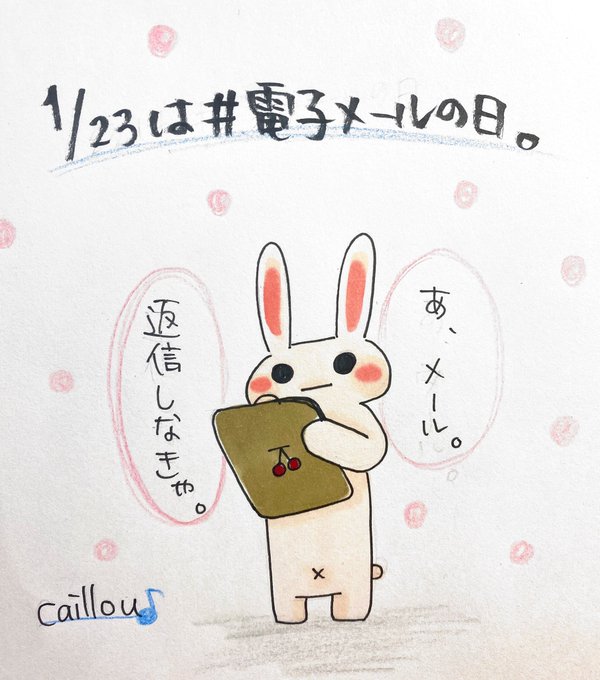 1/23は#電子メールの日。
あ、メール。
返信しなきゃ。
caillou